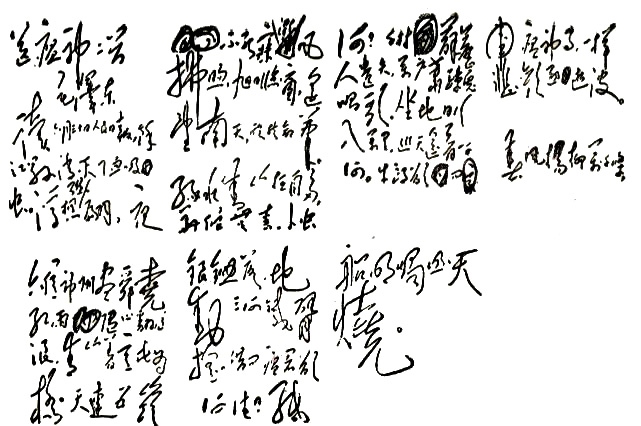 送瘟神二首
毛澤东
讀六月三十日人民日報,餘
江縣消灭了血吸
虫,浮想联翩,夜
不能寐,微风
拂煦,旭日临窗,遥
望南天,欣然命笔。
绿水青山枉自多,
華佗無奈小虫
何!千村薜荔
人遗矢,万户萧疎鬼
唱歌。坐地日行
八万里,巡天遥看一千
河。牛郎欲问
瘟神事,一樣
悲歡逐逝波。
春风楊柳万千条
六億神州尽舜堯
红雨随心翻作
浪,青山着意化为
橋。天連五嶺
银鋤落,地
动三河鐵臂
摇。借问瘟君欲
何往?纸
船明烛照天
燒。